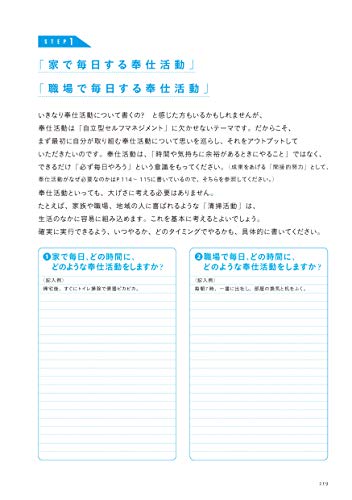 STEP 1
「家で毎日する奉仕活動」
「職場で毎日する奉仕活動」
いきなり奉仕活動について書くの?　と感じた方もいるかもしれませんが、
奉仕活動は「自立型セルフマネジメント」に欠かせないテーマです。だからこそ、
まず最初に自分が取り組む奉仕活動について思いを巡らし、それをアウトプットして
いただきたいのです。奉仕活動は、「時間や気持ちに余裕があるときにやること」ではなく、
できるだけ「必ず毎日やろう」という意識をもってください。（成果をあげる「間接的努力」として、
奉仕活動がなぜ必要なのかはP.114〜115に書いているので、そちらを参照してください。）
奉仕活動といっても、大げさに考える必要はありません。
たとえば、家族や職場、地域の人に喜ばれるような「清掃活動」は、
生活のなかに容易に組み込めます。これを基本に考えるとよいでしょう。
確実に実行できるよう、いつやるか、どのタイミングでやるかも、具体的に書いてください。
❶家で毎日、どの時間に、
どのような奉仕活動をしますか?
（記入例）
帰宅後、すぐにトイレ掃除で便器ピカピカ。
❷職場で毎日、どの時間に、
どのような奉仕活動をしますか?
（記入例）
毎朝7時、一番に出社し、部屋の換気と机をふく。
219